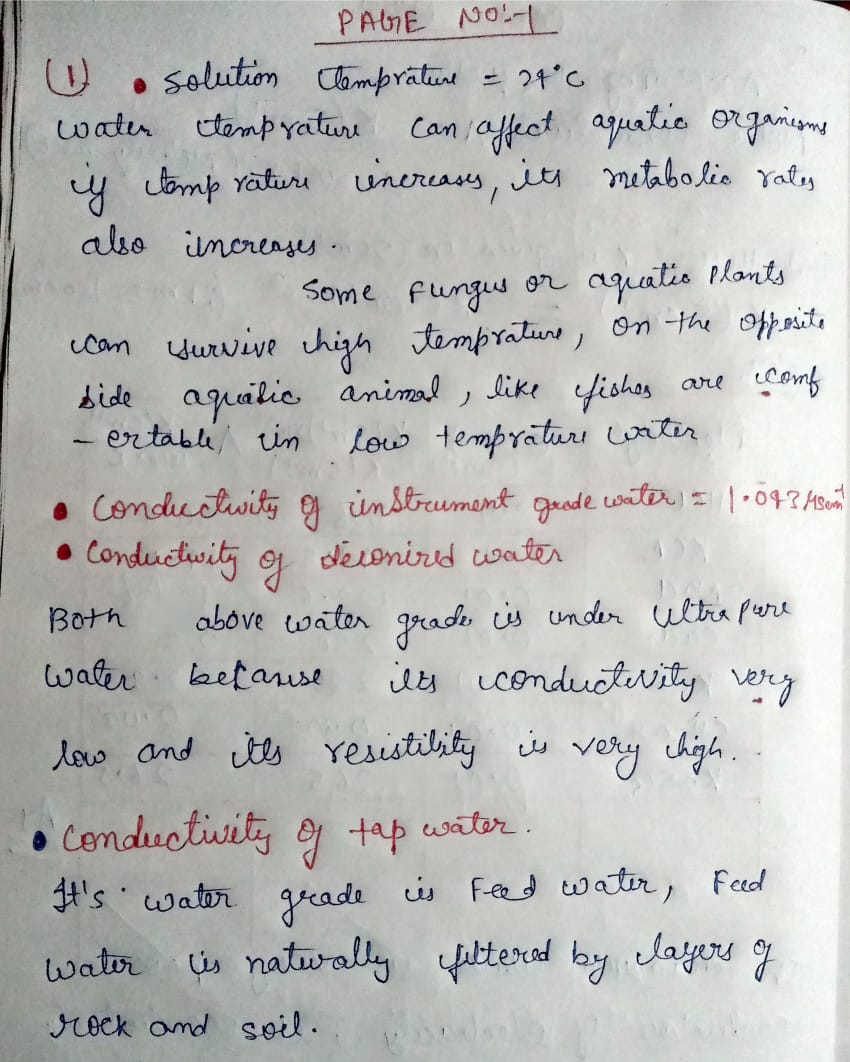 PAGE NO:-1
(1) • Solution temprature = 24°C
water temprature can affect aquatic organisms
if temprature increases, its metabolic rates
also increases.
Some fungus or aquatic plants
can survive high temprature, on the opposite
side aquatic animal, like fishes are comf
- ertable, in low temprature water
• Conductivity of instrument grade water = 1.043 μscm⁻¹
• Conductivity of deionized water
Both above water grade is under ultra pure
water because its conductivity very
low and its resistility is very high.
• Conductivity of tap water.
It's water grade is Feed water, Feed
water is naturally filtered by layers of
rock and soil.